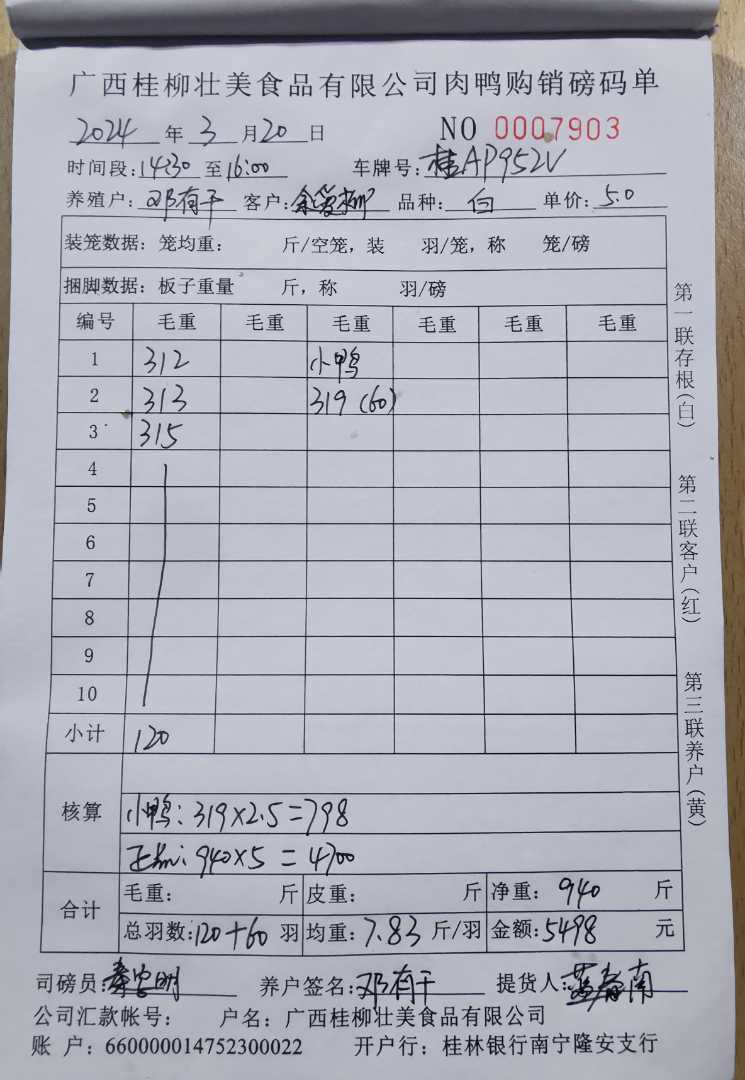 广西桂柳壮美食品有限公司肉鸭购销磅码单
2024 年 3 月 20 日 NO 0007903
时间段: 14:30 至 16:00 车牌号: 桂AP952V
养殖户: 邓有干 客户: 余爱柳 品种: 白 单价: 5.0
装笼数据: 笼均重: 斤/空笼, 装 羽/笼, 称 笼/磅
捆脚数据: 板子重量 斤, 称 羽/磅
编号 毛重 毛重 毛重 毛重 毛重 毛重
1 312 小鸭
2 313 319 (60)
3 315
4
5
6
7
8
9
10
小计 120
核算
小鸭: 319×2.5=798
正品: 940×5 = 4700
合计
毛重: 斤 皮重: 斤 净重: 940 斤
总羽数: 120+60 羽 均重: 7.83 斤/羽 金额: 5498 元
司磅员: 养户签名: 邓有干 提货人:
公司汇款帐号: 户名: 广西桂柳壮美食品有限公司
账 户: 660000014752300022 开户行: 桂林银行南宁隆安支行
第一联存根(白)
第二联客户(红)
第三联养户(黄)